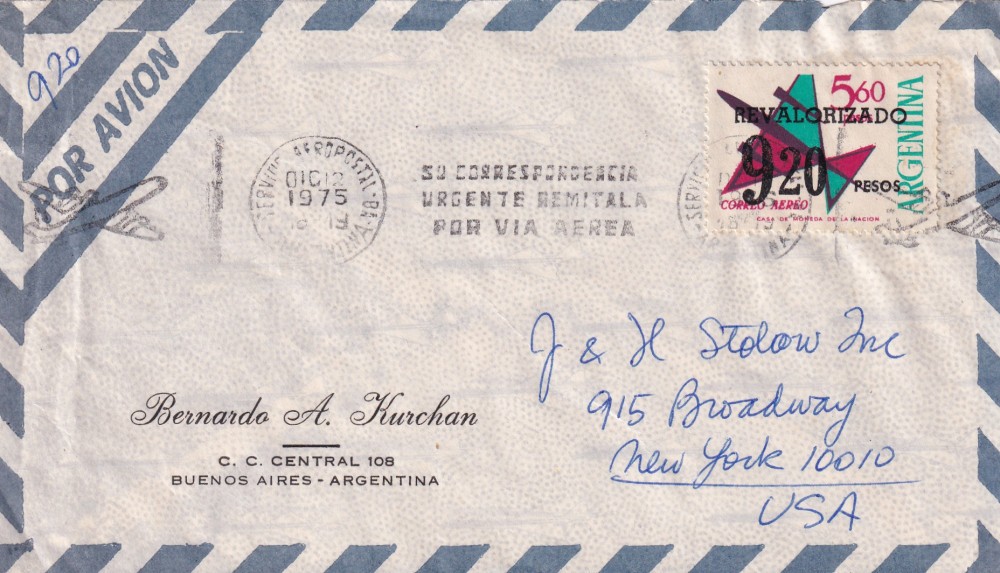 920
POR AVION
SERVICIO AEROPOSTAL
DIC12
1975
SU CORRESPONDENCIA
URGENTE REMITALA
POR VIA AEREA
560
REVALORIZADO
9,20
PESOS
ARGENTINA
CORREO AEREO
CASA DE MONEDA DE LA NACION
J & H Stolow Inc
915 Broadway
New York 10010
USA
Bernardo A. Kurchan
C. C. CENTRAL 108
BUENOS AIRES - ARGENTINA